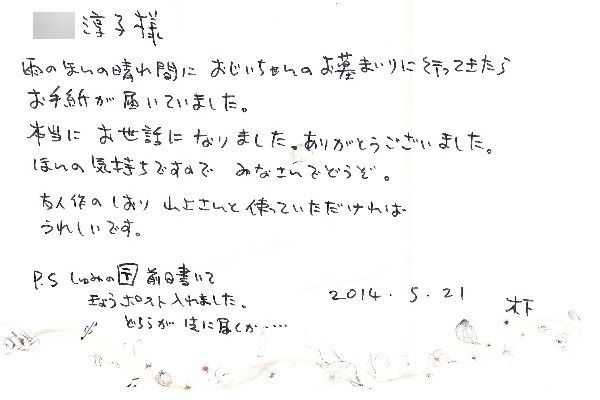 淳子様
雨のほんの晴れ間に おじいちゃんのお墓まいりに行ってきたら
お手紙が届いていました。
本当に お世話に なりました。ありがとうございました。
ほんの気持ちですので みなさんでどうぞ。
友人作の しおり 山上さんと 使っていただければ
うれしいです。
P.S しゅみの 前日書いて
きょうポスト入れました。
どちらが 先に届くか‥‥
2014.5.21 木下